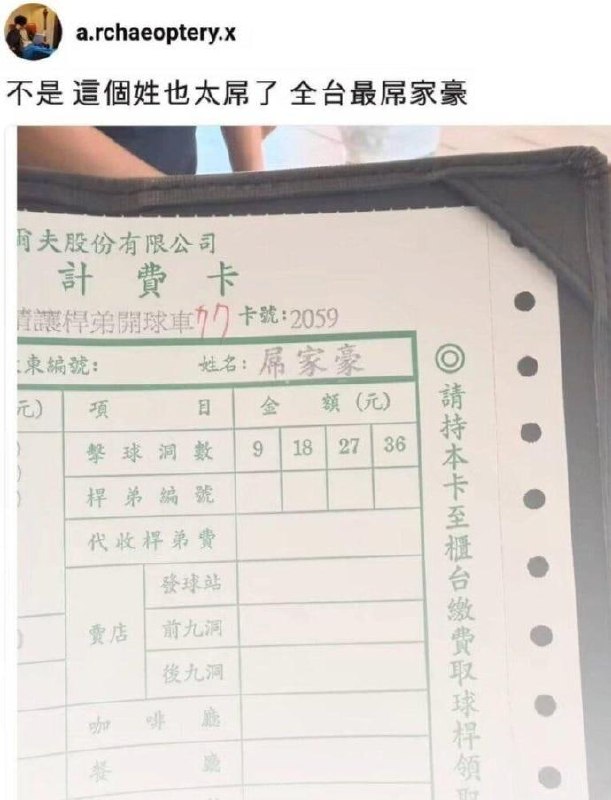 a.rchaeoptery.x
不是 這個姓也太屌了 全台最屌家豪
爾夫股份有限公司
計費卡
請讓桿弟開球車 77 卡號:2059
東編號: 姓名:屌家豪
元) 項目 金額(元)
擊球洞數 9 18 27 36
桿弟編號
代收桿弟費
賣店 發球站
前九洞
後九洞
咖啡廳
餐廳
◎請持本卡至櫃台繳費取球桿領取